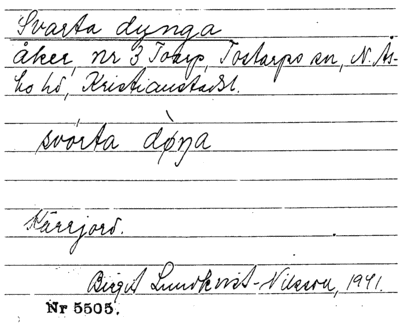 Svarta dynga
åker, nr 3 Toarp, Tostarps sn, N. Ås-
bo hd, Kristianstads l.
svórta dø̀ŋa
Kärrjord.
Birgit Lundkvist-Nilsson, 1941.
Nr 5505.